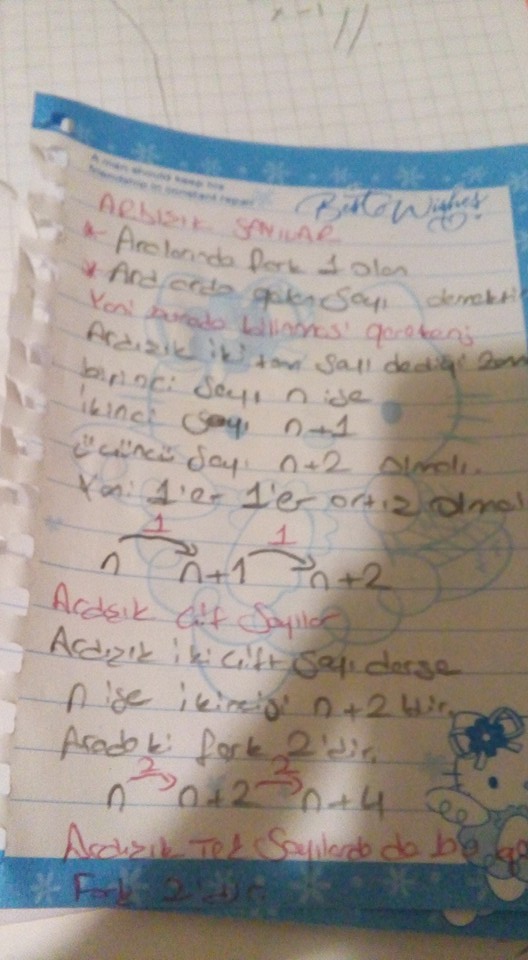 x-1 //
A man should keep his
friendship in constant repair
Best Wishes
ARDIZIK SAYILAR
* Aralarında fark 1 olan
* Ard arda gelen sayı demektir
Yani burada bilinmesi gereken;
Ardızık iki tam sayı dediği zam
birinci sayı n ise
ikinci sayı n+1
üçüncü sayı n+2 olmalı.
Yani 1'er 1'er artız olmal
1 1
n n+1 n+2
Ardızık çift Sayılar
Ardızık iki çift sayı derse
n ise ikincisi n+2'dir.
Aradaki fark 2'dir.
2 2
n n+2 n+4
Ardızık Tek Sayılarda da
Fark 2'dir